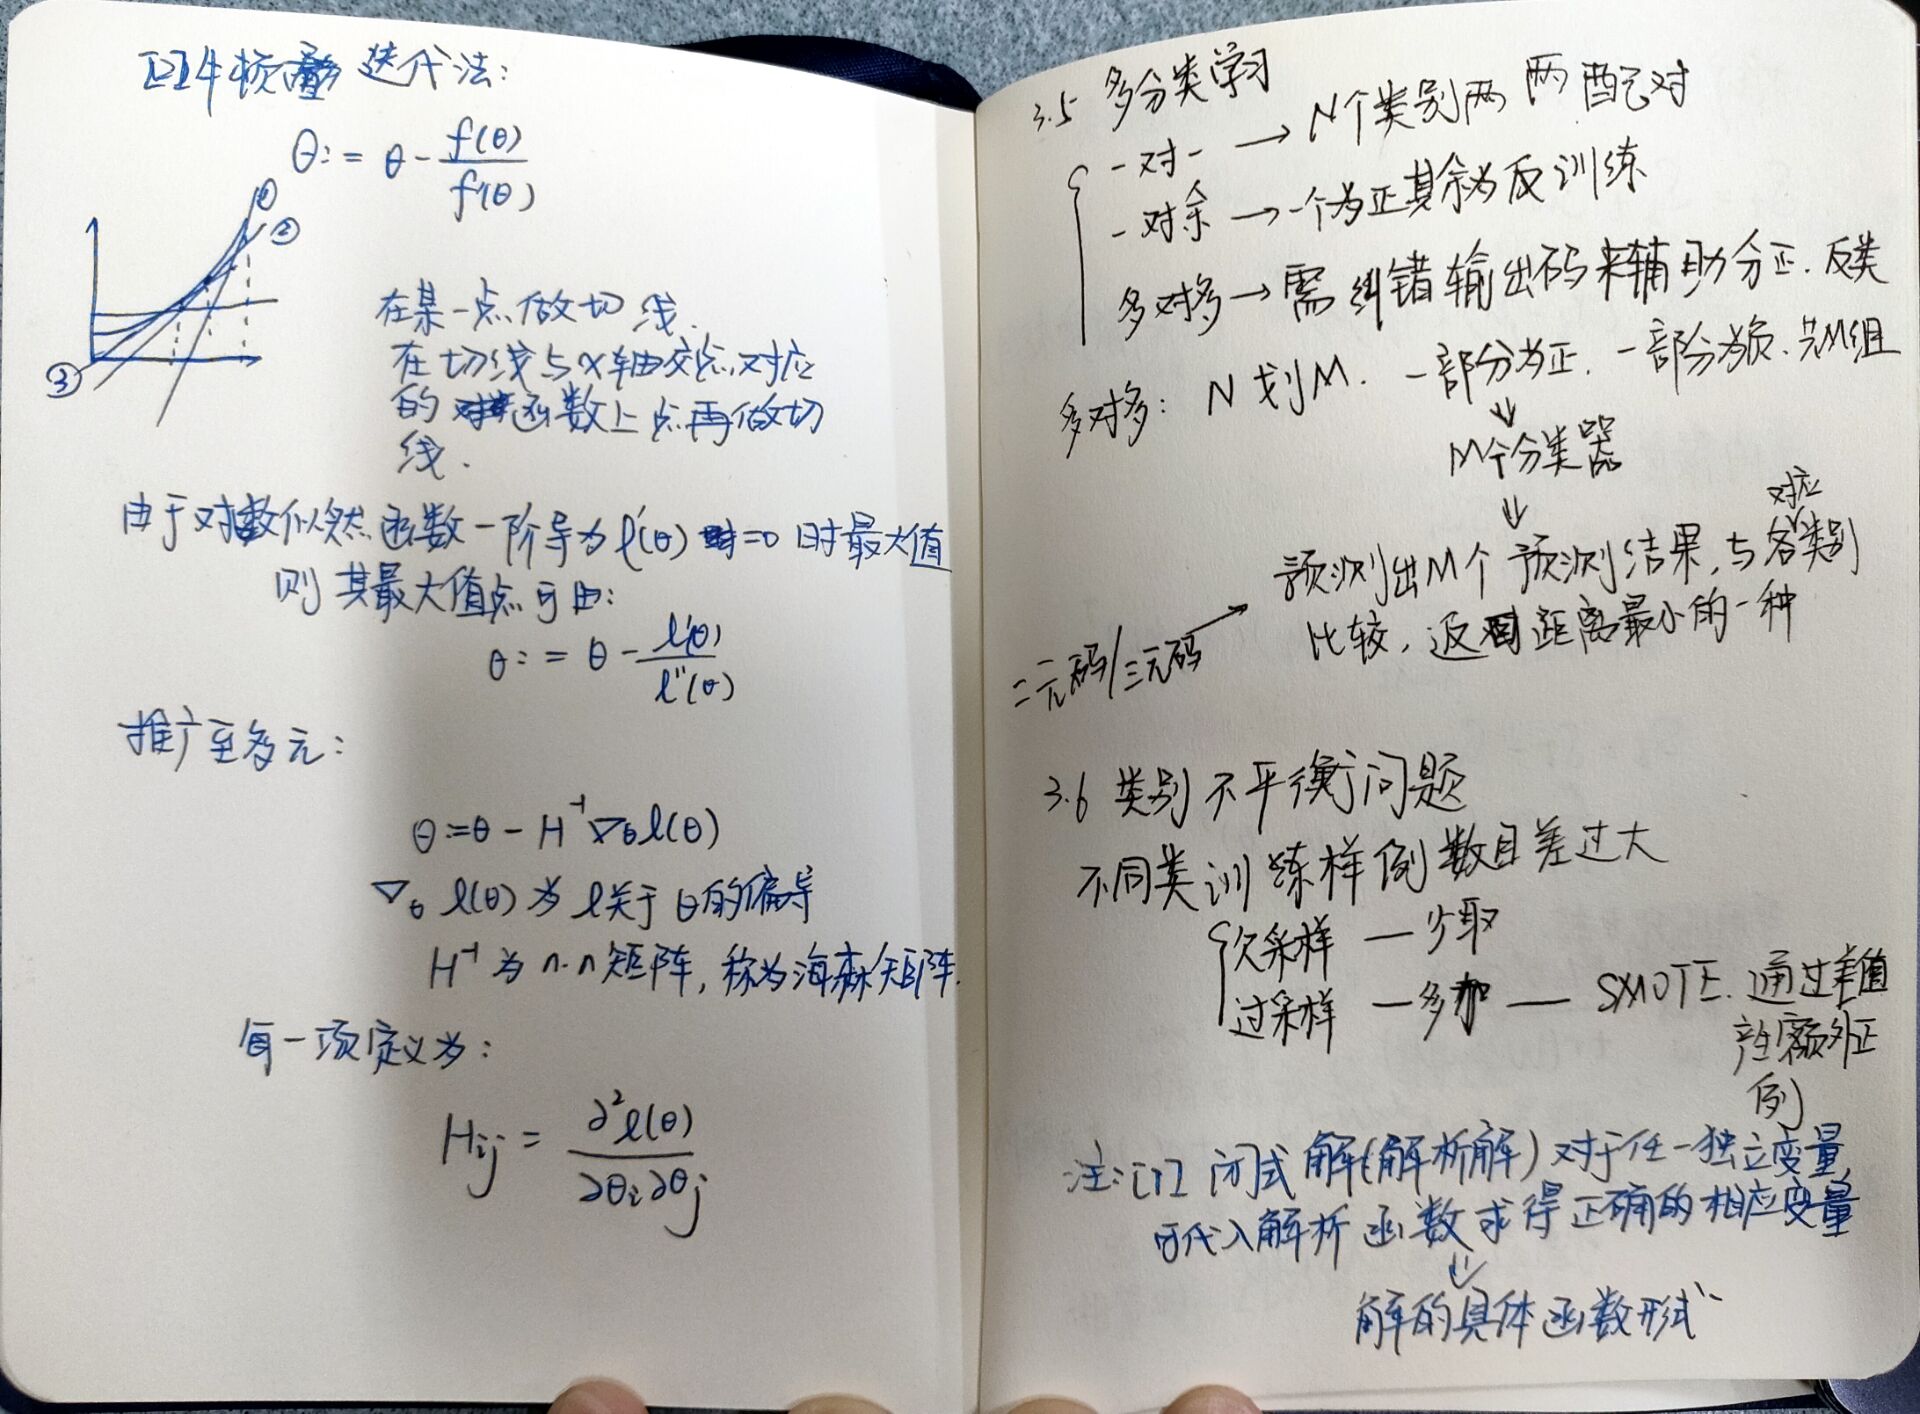 [2]牛顿迭代法:
θ:= θ - f(θ)/f'(θ)
①
②
③
在某一点做切线.
在切线与x轴交点对应
的函数上点再做切
线.
由于对数似然函数一阶导为ℓ'(θ)=0时最大值
则其最大值点可由:
θ:= θ - ℓ'(θ)/ℓ''(θ)
推广至多元:
θ:=θ - H⁻¹∇θℓ(θ)
∇θ ℓ(θ) 为 ℓ关于θ的偏导
H⁻¹ 为 n·n 矩阵, 称为海森矩阵.
每一项定义为:
Hij = ∂²ℓ(θ)/∂θi∂θj
3.5 多分类学习
一对一 → N个类别两两配对
一对余 → 一个为正其余为反训练
多对多 → 需纠错输出码来辅助分正.反类
多对多: N划M. 一部分为正. 一部分为负. 共M组
⇓
M个分类器
⇓
对应
预测出M个预测结果,与各类别
二元码/三元码 → 比较, 返回距离最小的一种
3.6 类别不平衡问题
不同类训练样例数目差过大
欠采样 — 少取
过采样 — 多加 — SMOTE. 通过差值
产生额外正
例
注:[1] 闭式解(解析解)对于任一独立变量,
可代入解析函数求得正确的相应变量
⇓
解的具体函数形式